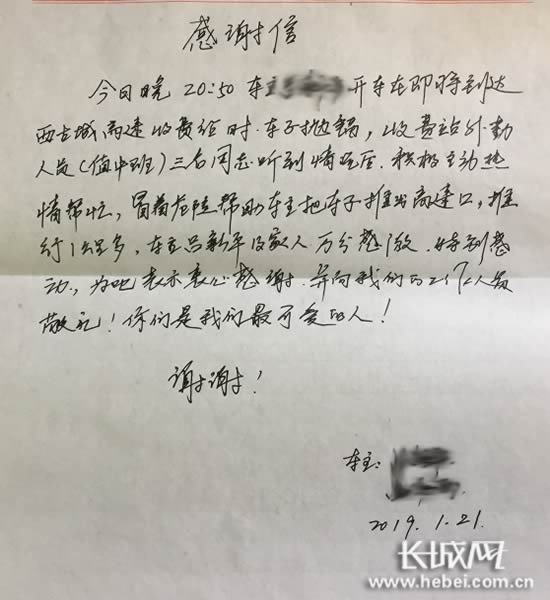 感谢信
今日晚 20:50 车主 开车在即将到达
西古城高速收费站时.车子抛锚,收费站外勤
人员(值中班)三名同志听到情况后.积极主动热
情帮忙,冒着危险帮助车主把车子推出高速口,推
行1公里多,车主吕新平及家人万分感激.特别感
动,为此表示衷心感谢.并向我们的工作人员
敬礼!你们是我们最可爱的人!
谢谢!
车主:
2019.1.21.
长城网
www.hebei.com.cn